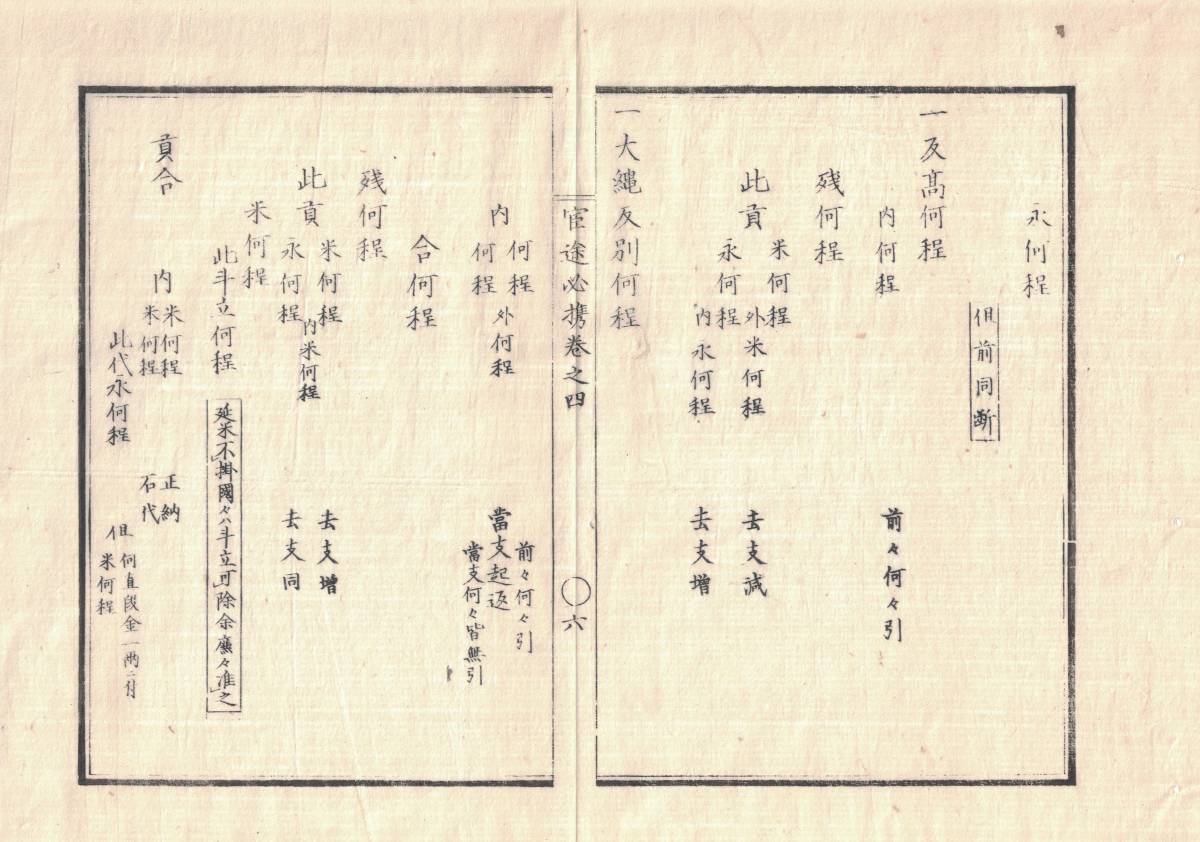 永何程
但前同断
一反高何程
内何程 前々何々引
残何程
此貢
米何程 外米何程 去支減
永何程 内永何程 去支増
一大縄反別何程
官途必携巻之四 〇六
内
何程 前々何々引
外何程 當支起返
何程 當支何々皆無引
合何程
残何程
此貢
米何程 内米何程 去支増
永何程 去支同
米何程
此斗立何程 延米不掛國々ハ斗立可除余廉々准之
貢合
内
米何程 正納
米何程 石代
此代永何程 但
何直段金一両ニ付
米何程